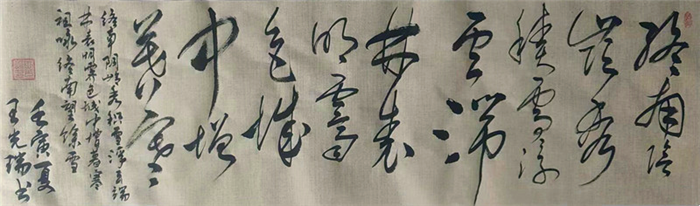 终南阴
岭秀
积雪浮
云端
林表
明霁
色城
中增
暮寒
终南阴岭秀积雪浮云端
林表明霁色城中增暮寒
祖咏终南望馀雪
壬寅夏
王先瑞书